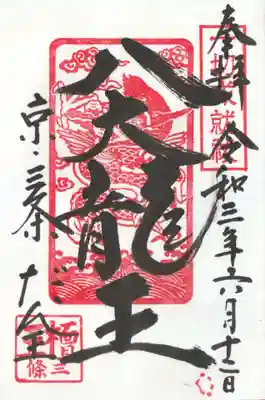 奉拝 令和三年六月十二日
八大龍王
京・三条 だん王
三條